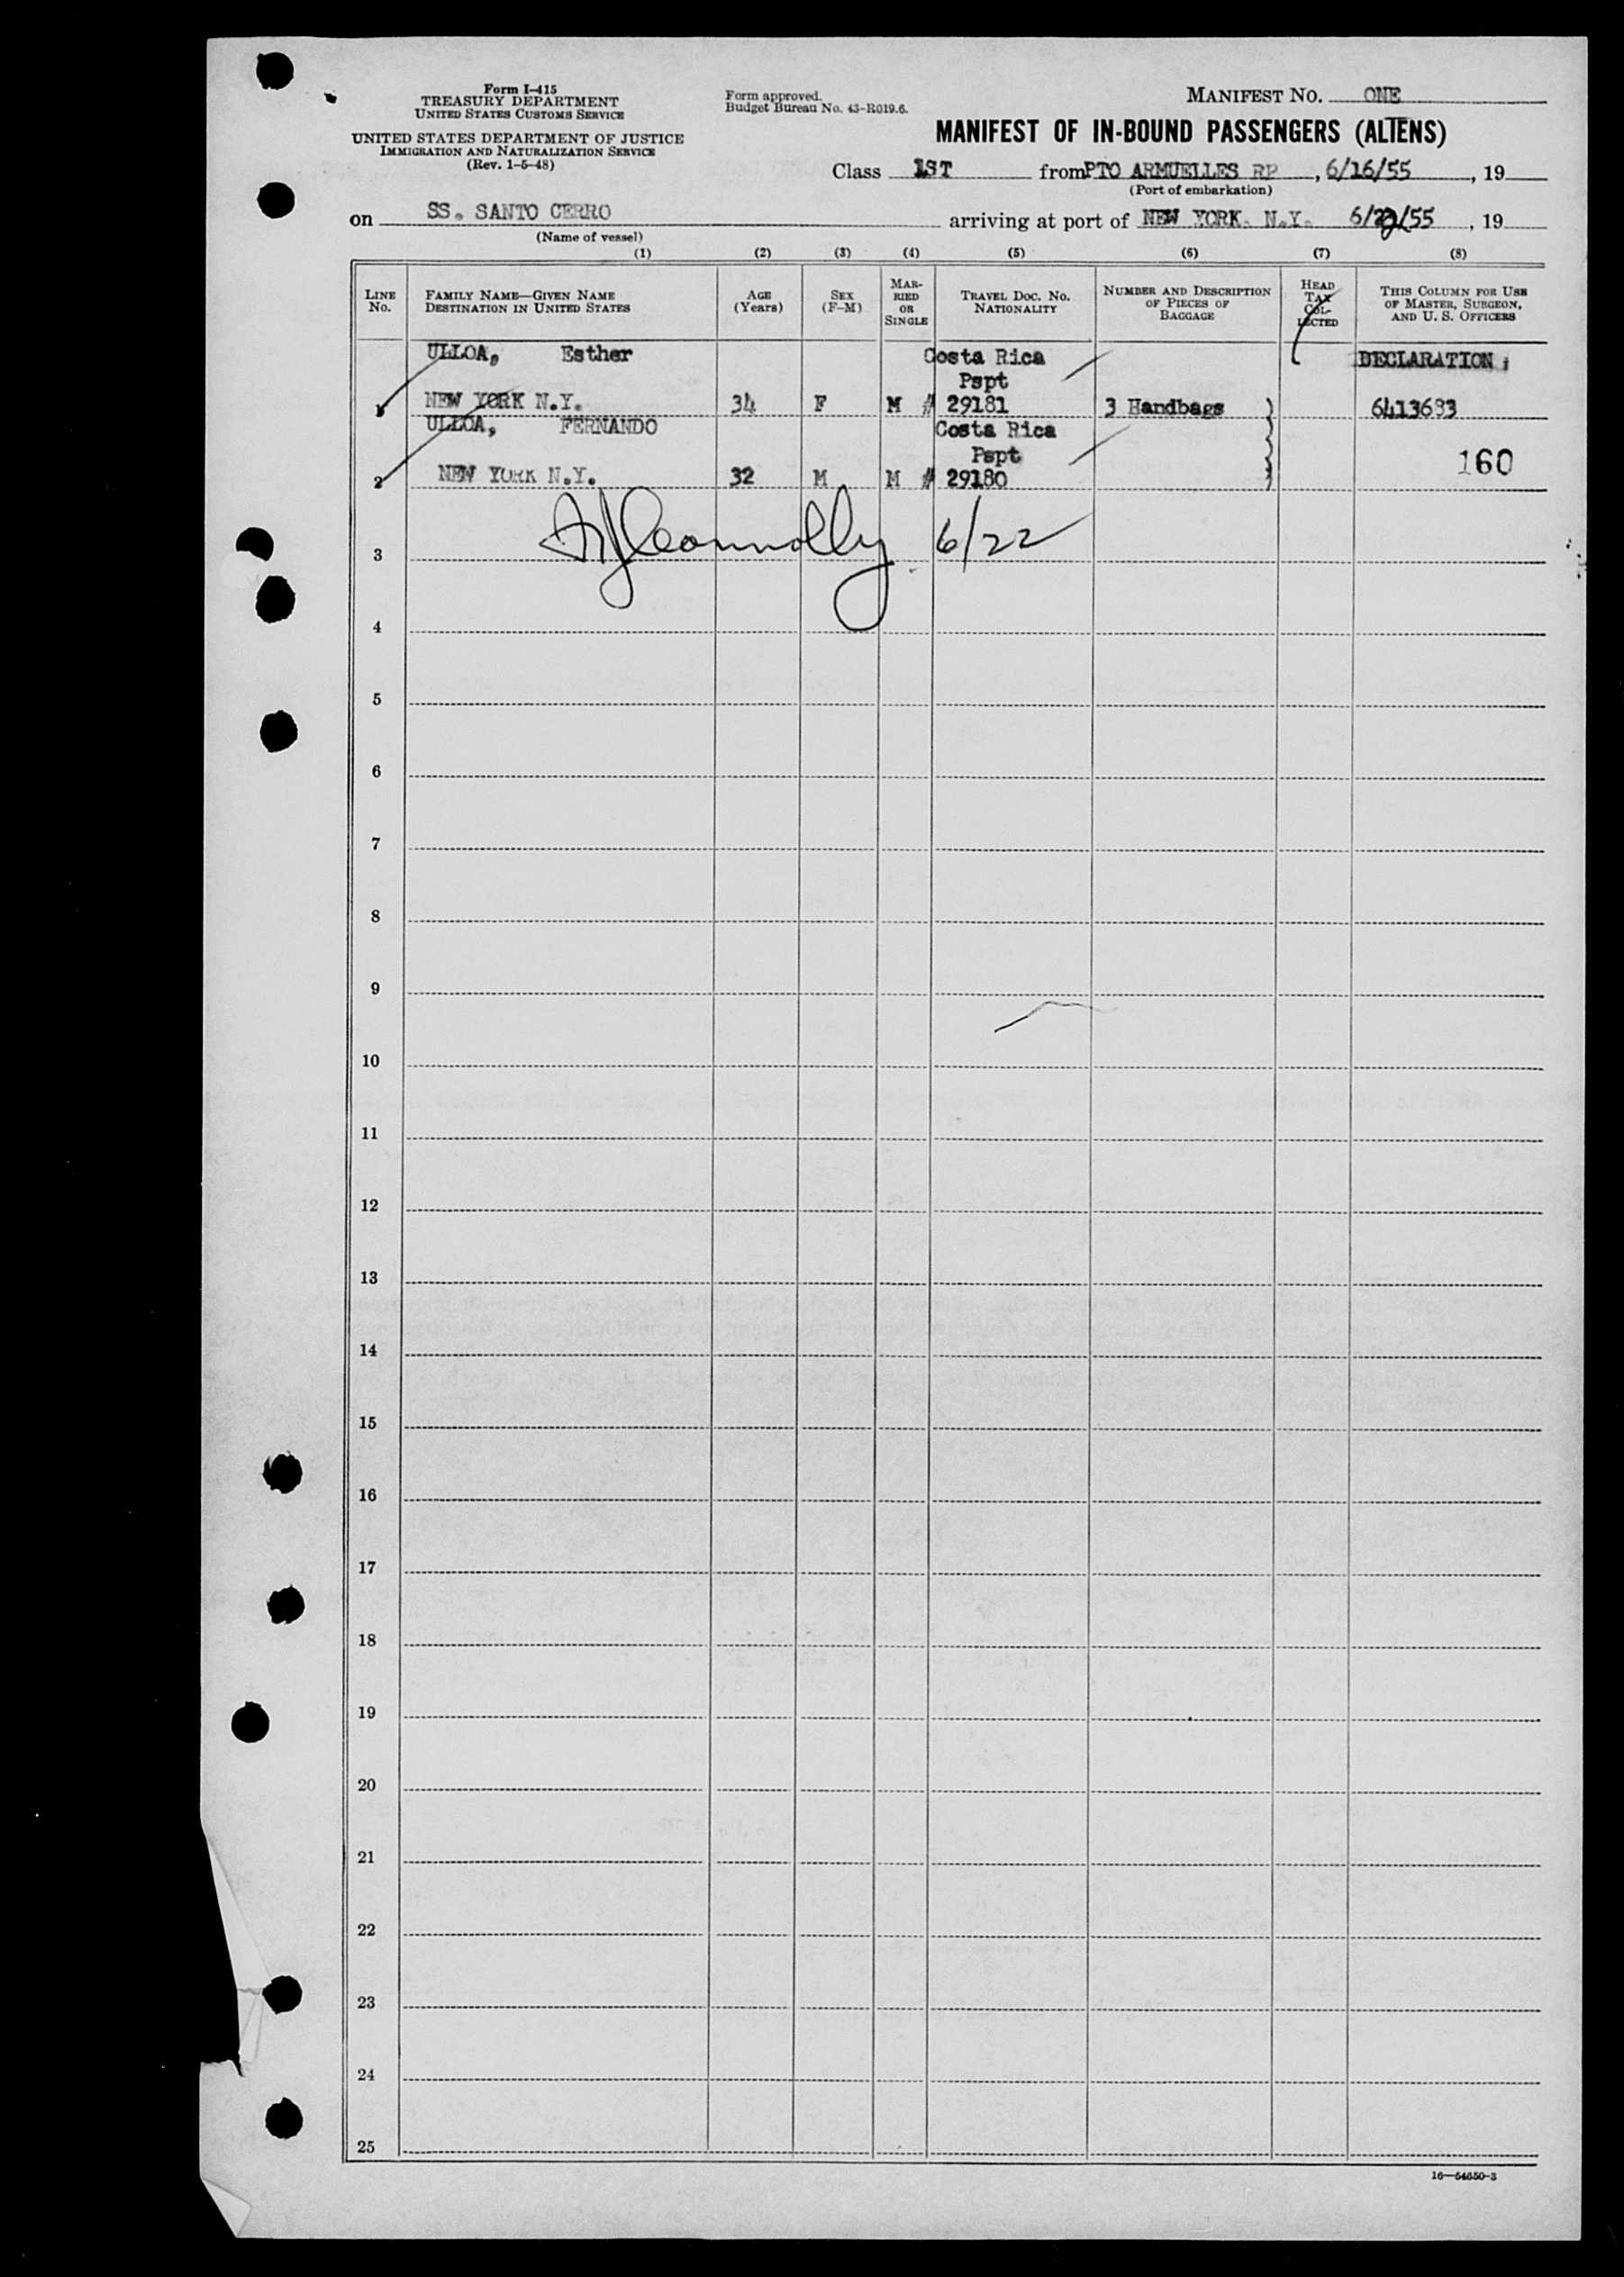 Form I-415
TREASURY DEPARTMENT
UNITED STATES CUSTOMS SERVICE
UNITED STATES DEPARTMENT OF JUSTICE
IMMIGRATION AND NATURALIZATION SERVICE
(Rev. 1-5-48)
Form approved.
Budget Bureau No. 43-R019.6.
MANIFEST NO. ONE
MANIFEST OF IN-BOUND PASSENGERS (ALIENS)
Class 1ST from PTO ARMUELLES RP, 6/16/55, 19
(Port of embarkation)
on SS. SANTO CERRO arriving at port of NEW YORK. N.Y. 6/22/55, 19
(Name of vessel)
(1) (2) (3) (4) (5) (6) (7) (8)
LINE No. FAMILY NAME—GIVEN NAME DESTINATION IN UNITED STATES AGE (Years) SEX (F-M) MARRIED OR SINGLE TRAVEL DOC. NO. NATIONALITY NUMBER AND DESCRIPTION OF PIECES OF BAGGAGE HEAD TAX COLLECTED THIS COLUMN FOR USE OF MASTER, SURGEON, AND U. S. OFFICERS
ULLOA, Esther Costa Rica DECLARATION
Pspt
1 NEW YORK N.Y. 34 F M # 29181 3 Handbags 6413683
ULLOA, FERNANDO Costa Rica
Pspt 160
2 NEW YORK N.Y. 32 M M # 29180
3 Connolly 6/22
4
5
6
7
8
9
10
11
12
13
14
15
16
17
18
19
20
21
22
23
24
25
16—54650-3